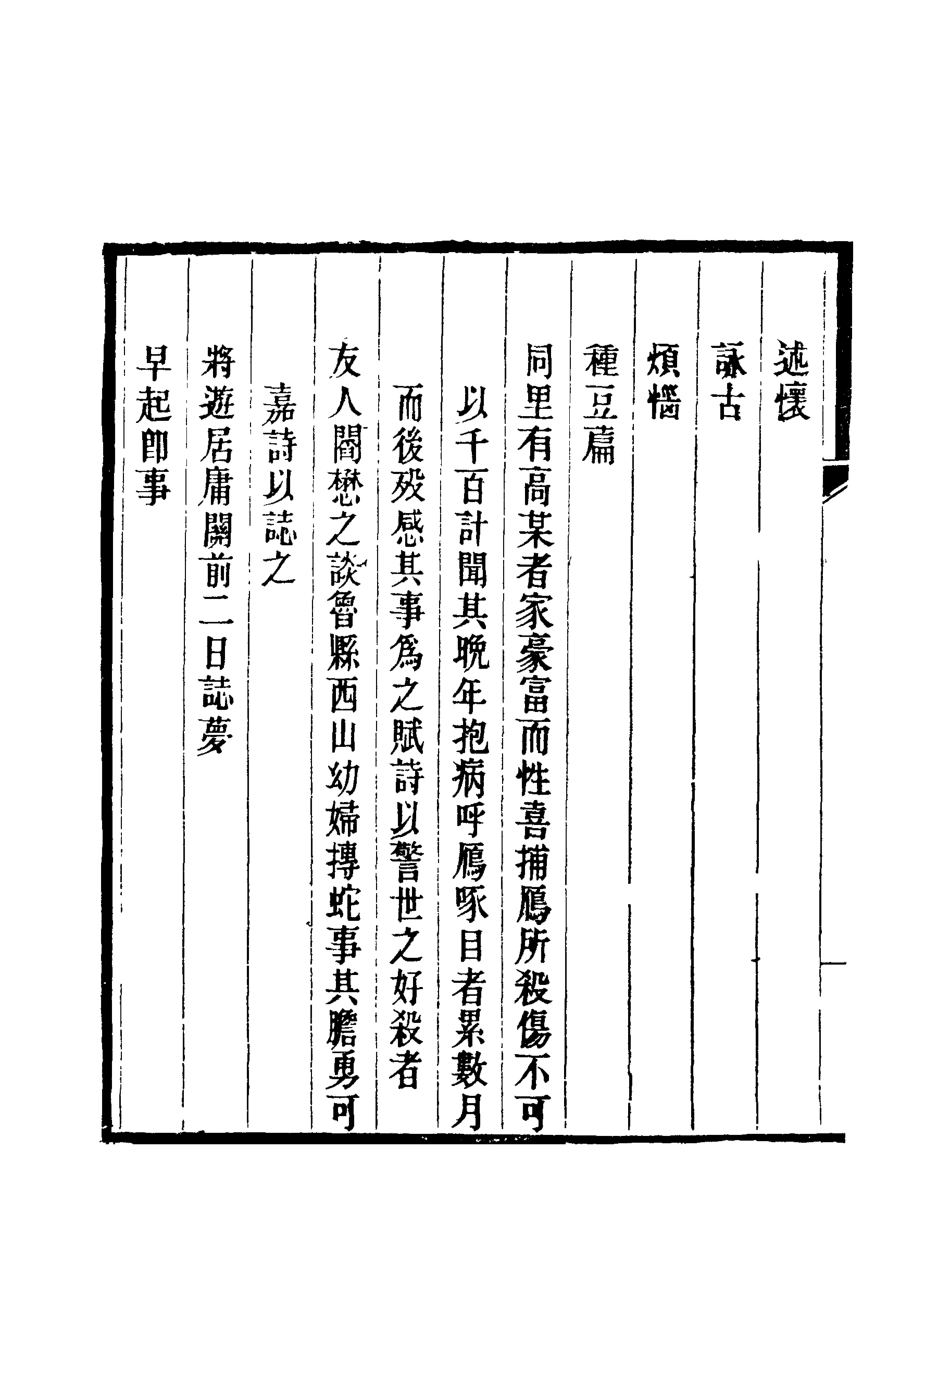 述懷
詠古
煩惱
種豆篇
同里有高某者家豪富而性喜捕鴈所殺傷不可
以千百計聞其晚年抱病呼鴈啄目者累數月
而後歿感其事爲之賦詩以警世之好殺者
友人閻懋之談魯縣西山幼婦摶蛇事其膽勇可
嘉詩以誌之
將遊居庸關前二日誌夢
早起卽事